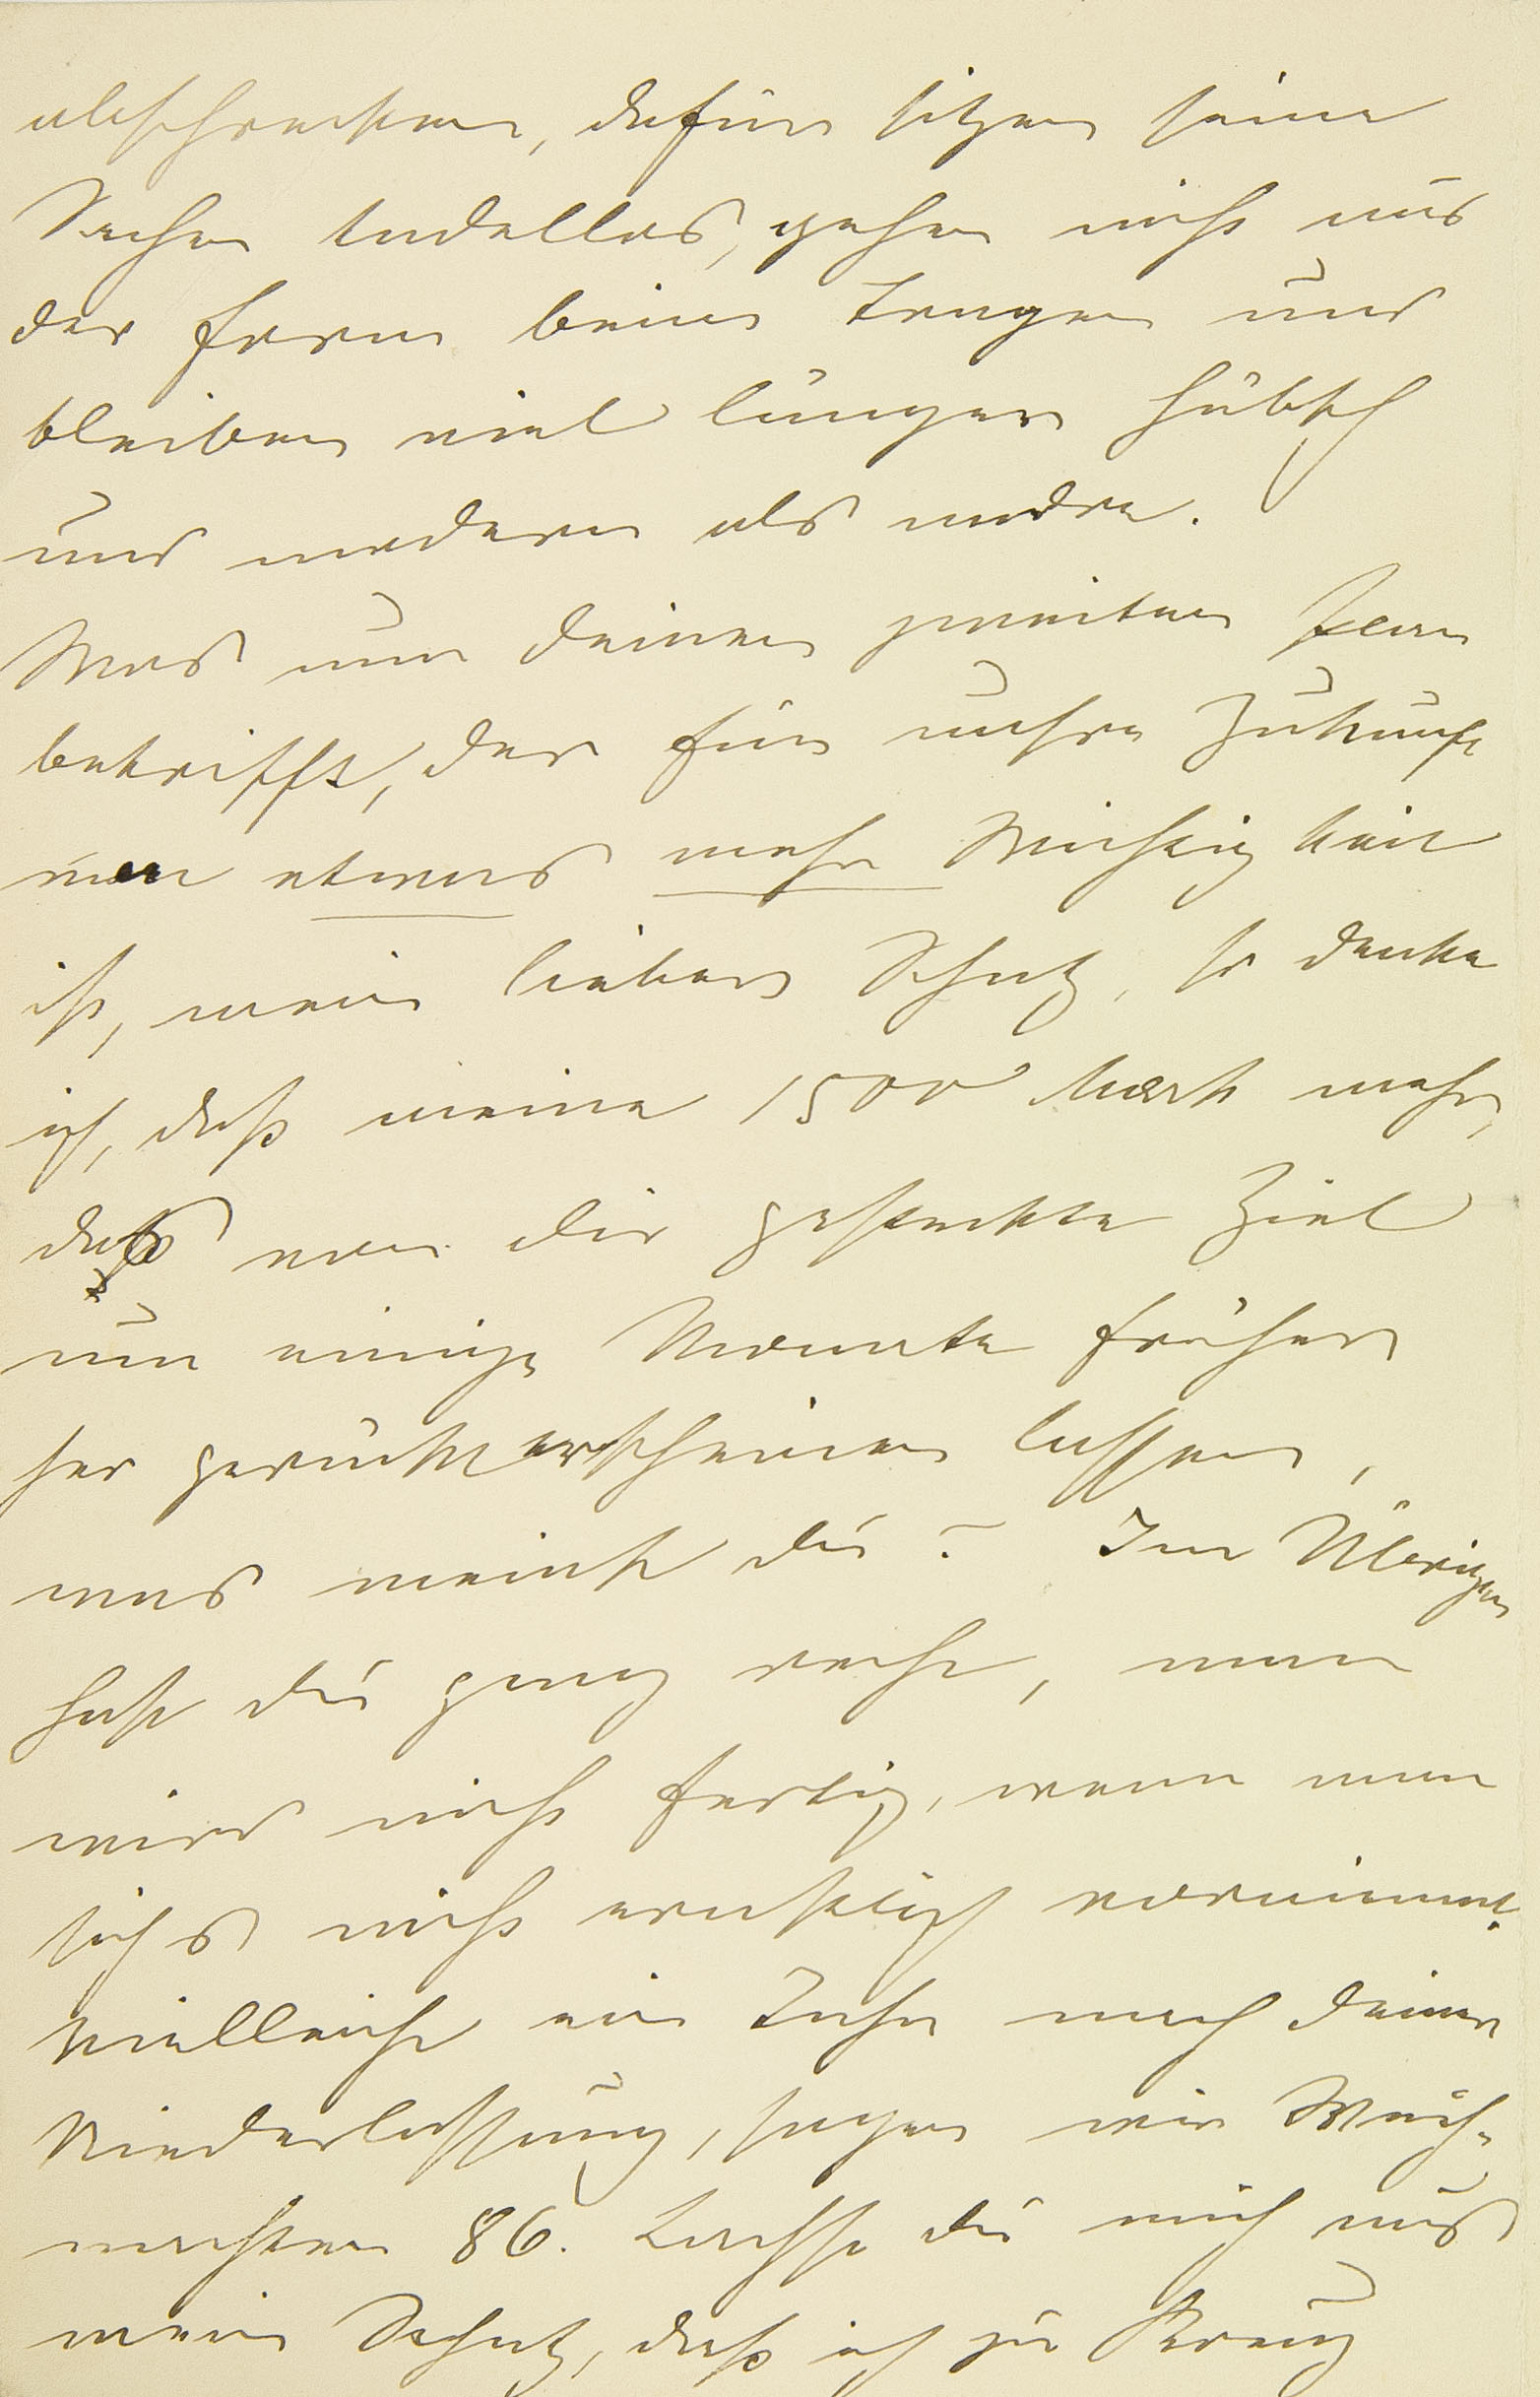 abschrecken, dafür sitzen seine
Sachen tadellos, gehen nicht aus
der Form beim Tragen und
bleiben viel länger hübsch
und modern als andre.
Was nun deinen zweiten Plan
betrifft, der für unsre Zukunft
von etwas mehr Wichtigkeit
ist, mein lieber Schatz, so denke
ich, daß meine 1500 Mark mehr,
das von dir gesteckte Ziel
um einige Monate früher
her gerückt erscheinen lassen,
was meinst du? Im Übrigen
hast du ganz recht, man
wird nicht fertig, wenn man
sichs nicht ernstlich vornimmt.
Vielleicht ein Jahr nach deiner
Niederlassung, sagen wir Weih-
nachten 86. Lachst du mich aus
mein Schatz, daß ich zu Kreuz